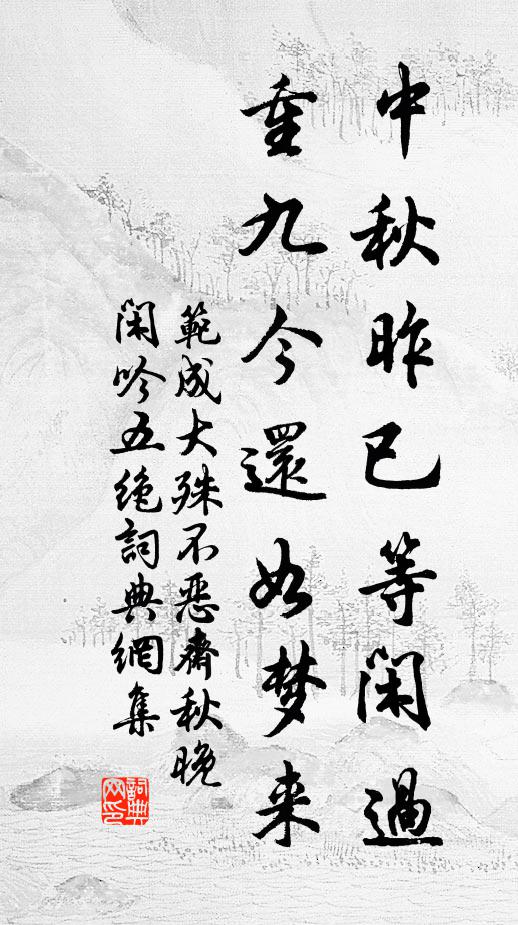 中秋昨已等闲過
重九今還如梦来
範成大殊不恶齋秋晚
闲吟五绝詞典網集
詞典網印